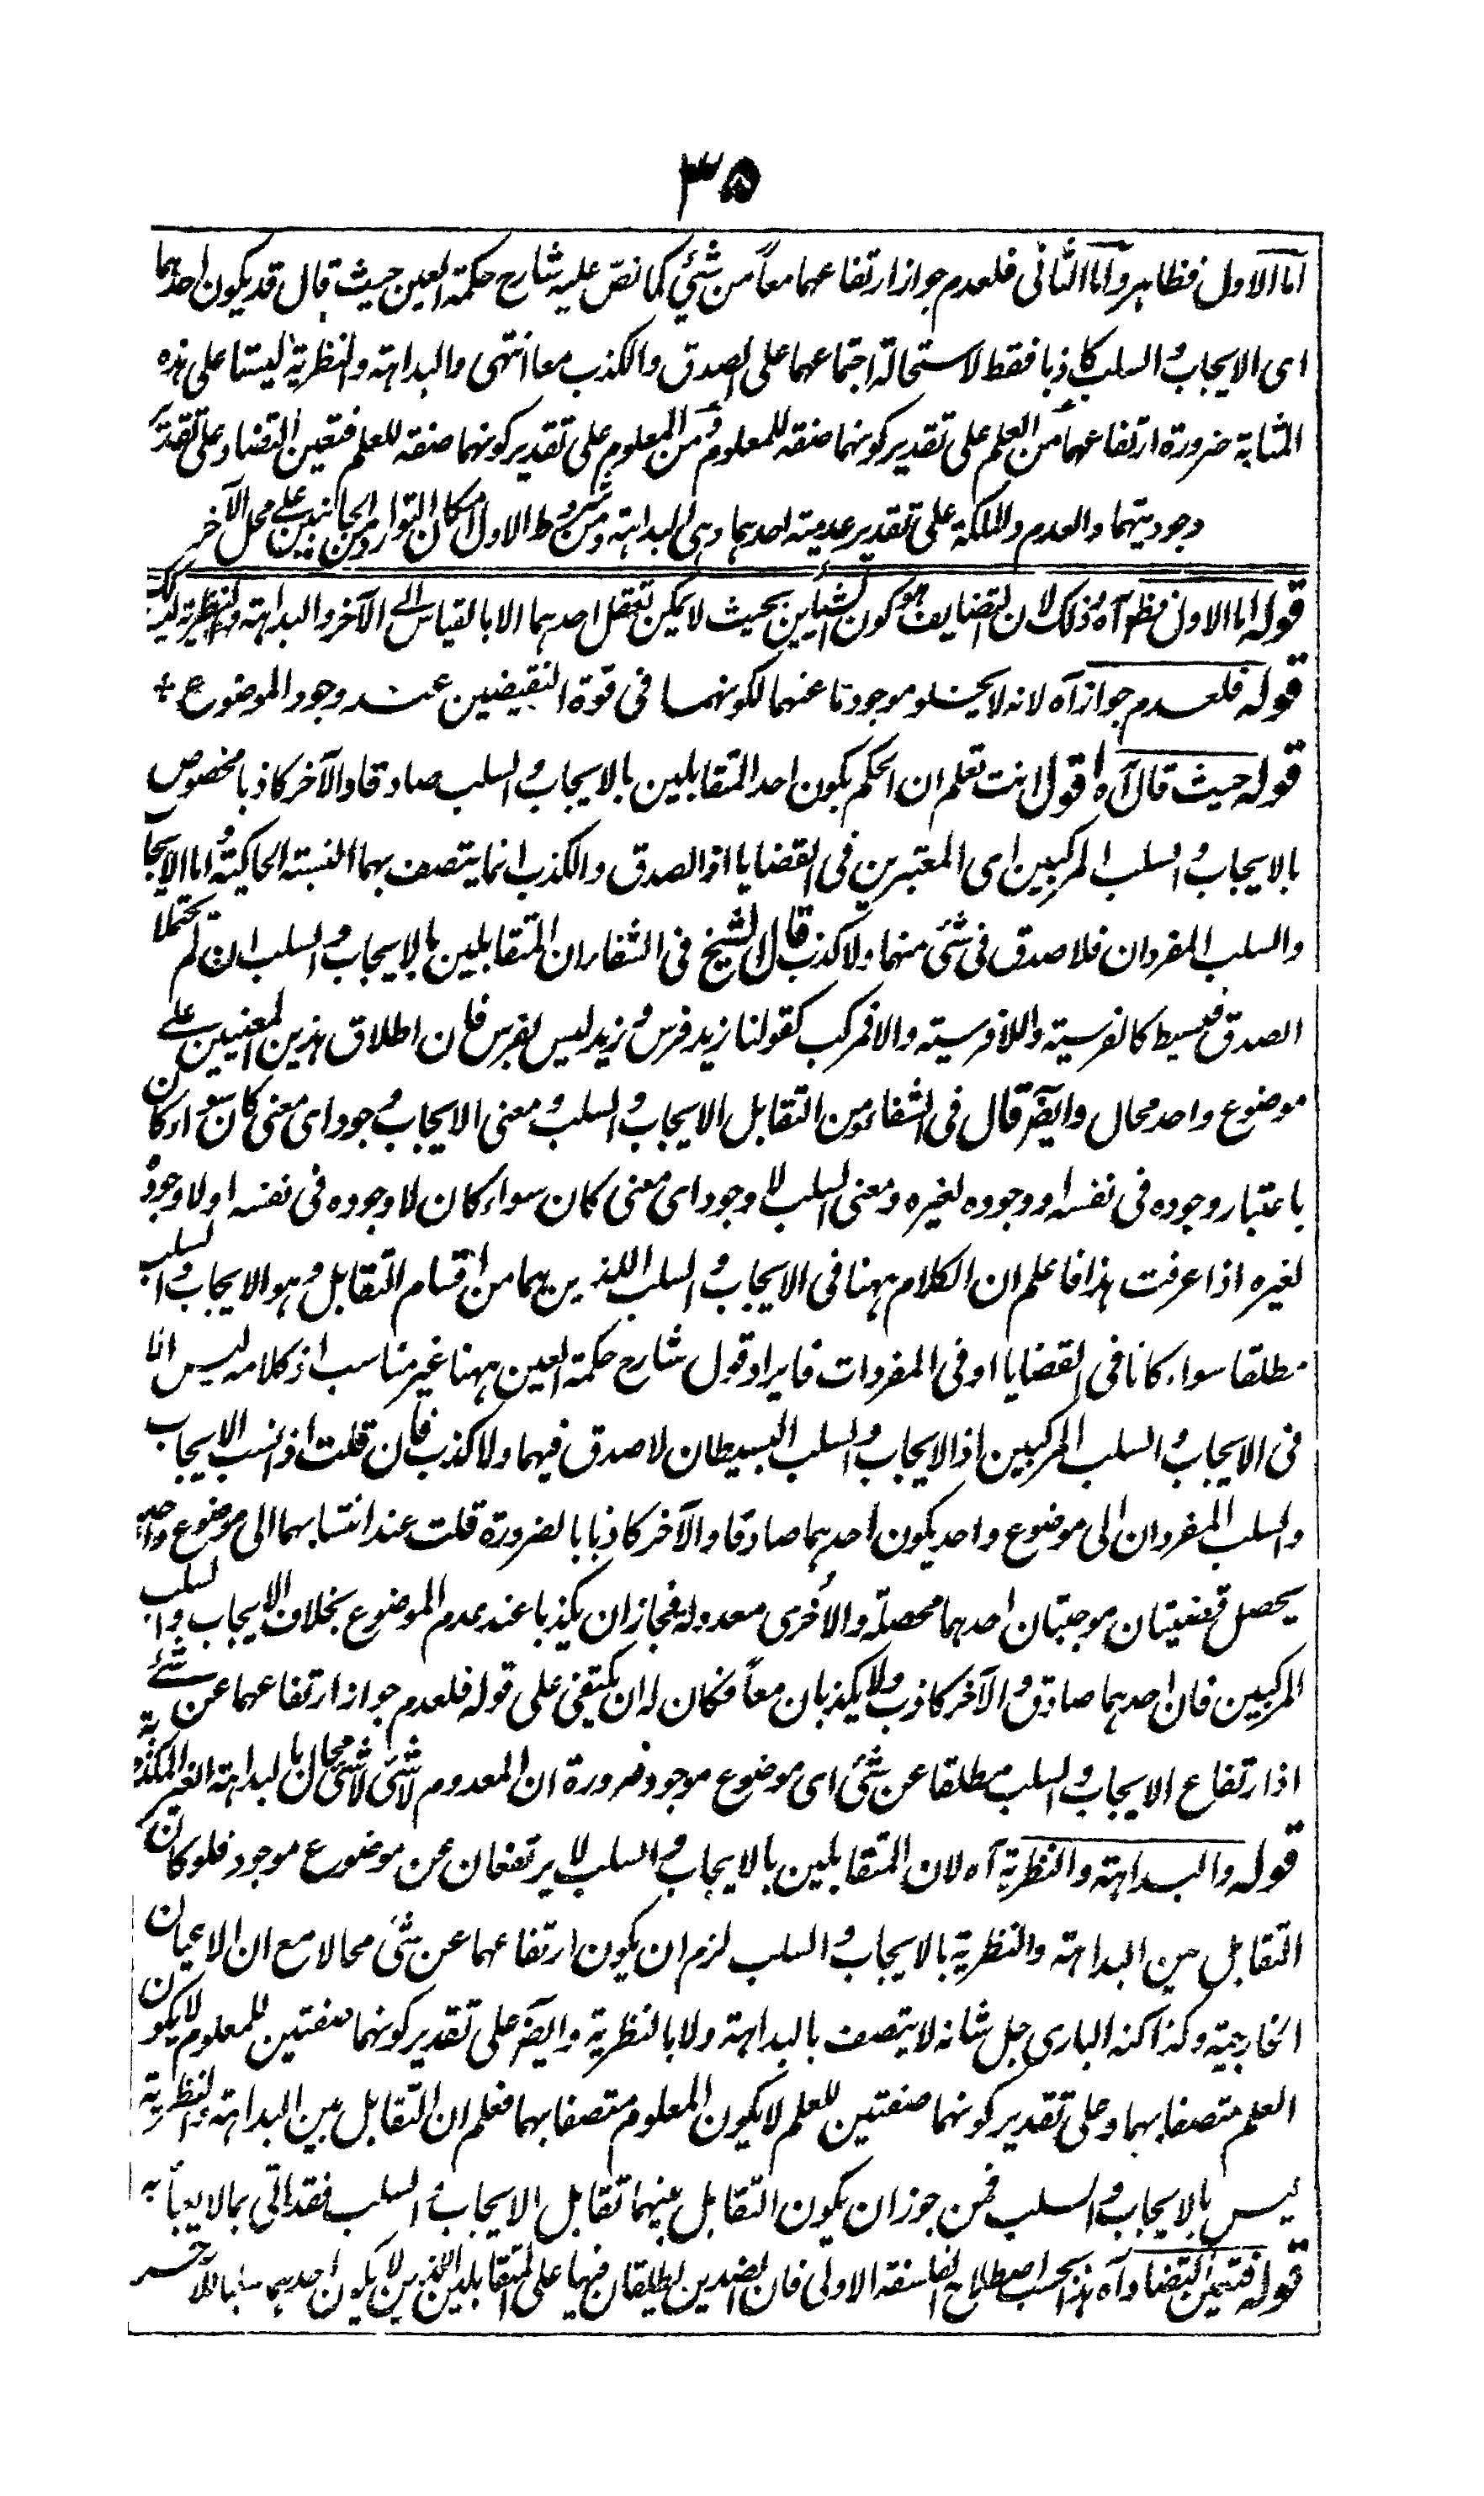 ٣٥
اما الاول فظاهر واما الثانى فلعدم جواز ارتفاعهما معاً من شئ كما نص عليه شارح حكمة العين حيث قال قد يكون احدهما
اى الايجاب والسلب كاذبا فقط لاستحالة اجتماعهما على الصدق والكذب معا انتهى والبداهة والنظرية ليستا على هذه
المثابة ضرورة ارتفاعهما من العلم على تقدير كونهما صفة للمعلوم ومن المعلوم على تقدير كونهما صفة للعلم فتعين التضاد على تقدير
وجوديتهما والعدم والملكة على تقدير عدمية احدهما وهى البداهة ومن شروط الاول امكان التوارد من الجانبين على محل الآخر
قوله اما الاول فظ آه وذلك لان التضايف هو كون الشيئين بحيث لا يمكن تعقل احدهما الا بالقياس الى الآخر والبداهة والنظرية ليستا كك
قوله فلعدم جواز آه لانه لا يخلو موجود ما عنهما لكونهما فى قوة النقيضين عند وجود الموضوع
قوله حيث قال آه اقول انت تعلم ان الحكم بكون احد المتقابلين بالايجاب والسلب صادقا والآخر كاذبا مخصوص
بالايجاب والسلب المركبين اى المعتبرين فى القضايا اذ الصدق والكذب انما يتصف بهما النسبة الحاكية واما الايجاب
والسلب المفردان فلا صدق فى شئ منهما ولا كذب قال الشيخ فى الشفاء ان المتقابلين بالايجاب والسلب ان لم يحتملا
الصدق فبسيط كالفرسية واللافرسية والا فمركب كقولنا زيد فرس وزيد ليس بفرس فان اطلاق هذين المعنيين على
موضوع واحد محال وايضا قال فى الشفاء من التقابل الايجاب والسلب ومعنى الايجاب وجود اى معنى كان سواء كان
باعتبار وجوده فى نفسه او وجوده لغيره ومعنى السلب لا وجود اى معنى كان سواء كان لا وجوده فى نفسه او لا وجوده
لغيره اذا عرفت هذا فاعلم ان الكلام ههنا فى الايجاب والسلب اللذين هما من اقسام التقابل وهو الايجاب والسلب
مطلقا سواء كانا فى القضايا او فى المفردات فايراد قول شارح حكمة العين ههنا غير مناسب اذ كلامه ليس الا
فى الايجاب والسلب المركبين اذ الايجاب والسلب البسيطان لا صدق فيهما ولا كذب فان قلت اذا نسب الايجاب
والسلب المفردان الى موضوع واحد يكون احدهما صادقا والآخر كاذبا بالضرورة قلت عند انتسابهما الى موضوع واحد
يحصل قضيتان موجبتان احدهما محصلة والاخرى معدولة فجاز ان يكذبا عند عدم الموضوع بخلاف الايجاب والسلب
المركبين فان احدهما صادق والآخر كاذب ولا يكذبان معاً فكان له ان يكتفى على قوله فلعدم جواز ارتفاعهما عن شئ
اذ ارتفاع الايجاب والسلب مطلقا عن شئ اى موضوع موجود ضرورة ان المعدوم لا شئ لا شئ محال بالبداهة الغير المكذوبة
قوله والبداهة والنظرية آه لان المتقابلين بالايجاب والسلب لا يرتفعان عن موضوع موجود فلو كان
التقابل بين البداهة والنظرية بالايجاب والسلب لزم ان يكون ارتفاعهما عن شئ محالا مع ان الاعيان
الخارجية وكذا كنه البارى جل شانه لا يتصف بالبداهة ولا بالنظرية وايضا على تقدير كونهما صفتين للمعلوم لا يكون
العلم متصفا بهما وعلى تقدير كونهما صفتين للعلم لا يكون المعلوم متصفا بهما فعلم ان التقابل بين البداهة والنظرية
ليس بالايجاب والسلب فمن جوز ان يكون التقابل بينهما تقابل الايجاب والسلب فقد اتى بما لا يعبأ به
قوله فتعين التضاد آه هذا بحسب اصطلاح الفلسفة الاولى فان الضدين يطلقان فيها على المتقابلين الذين لا يكون احدهما سلبا للآخر